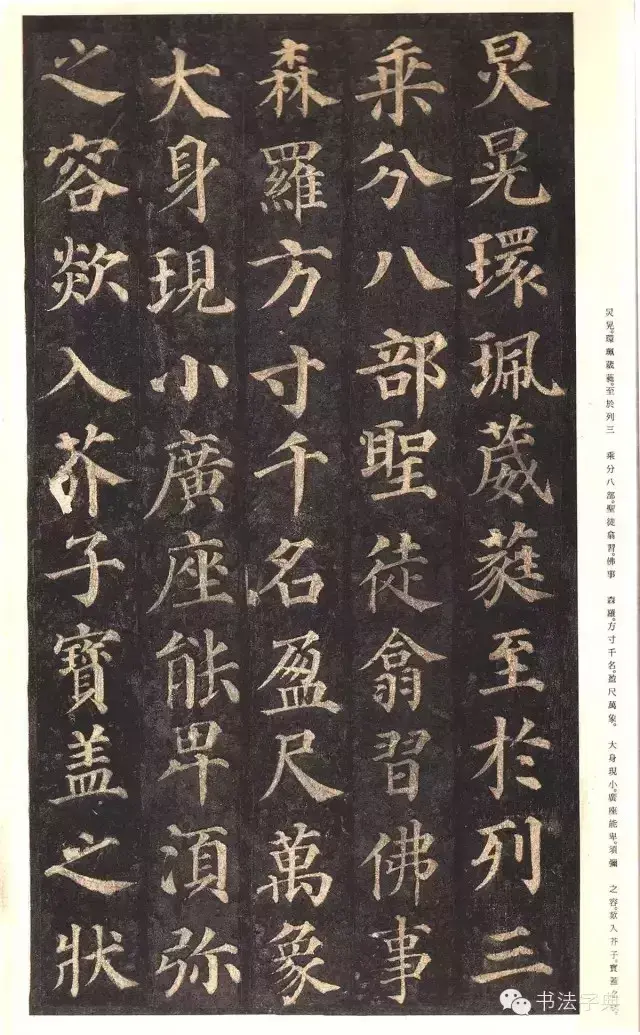 炅晃環珮葳蕤至於列三
乘分八部聖徒翕習佛事
森羅方寸千名盈尺萬象
大身現小廣座能卑湏弥
之容欻入芥子寶盖之狀
炅晃。環珮葳蕤。至於列三 乘分八部。聖徒翕習。佛事 森羅。方寸千名。盈尺萬象。 大身現小。廣座能卑。須彌 之容。欻入芥子。寶蓋之
书法字典